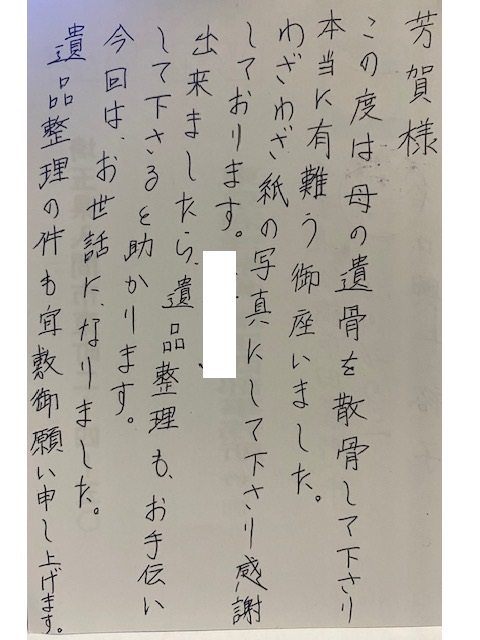 芳賀様
この度は、母の遺骨を散骨して下さり
本当に有難う御座いました。
わざわざ紙の写真にして下さり感謝
しております。
出来ましたら、遺品整理も、お手伝い
して下さると助かります。
今回は、お世話に、なりました。
遺品整理の件も宜敷御願い申し上げます。